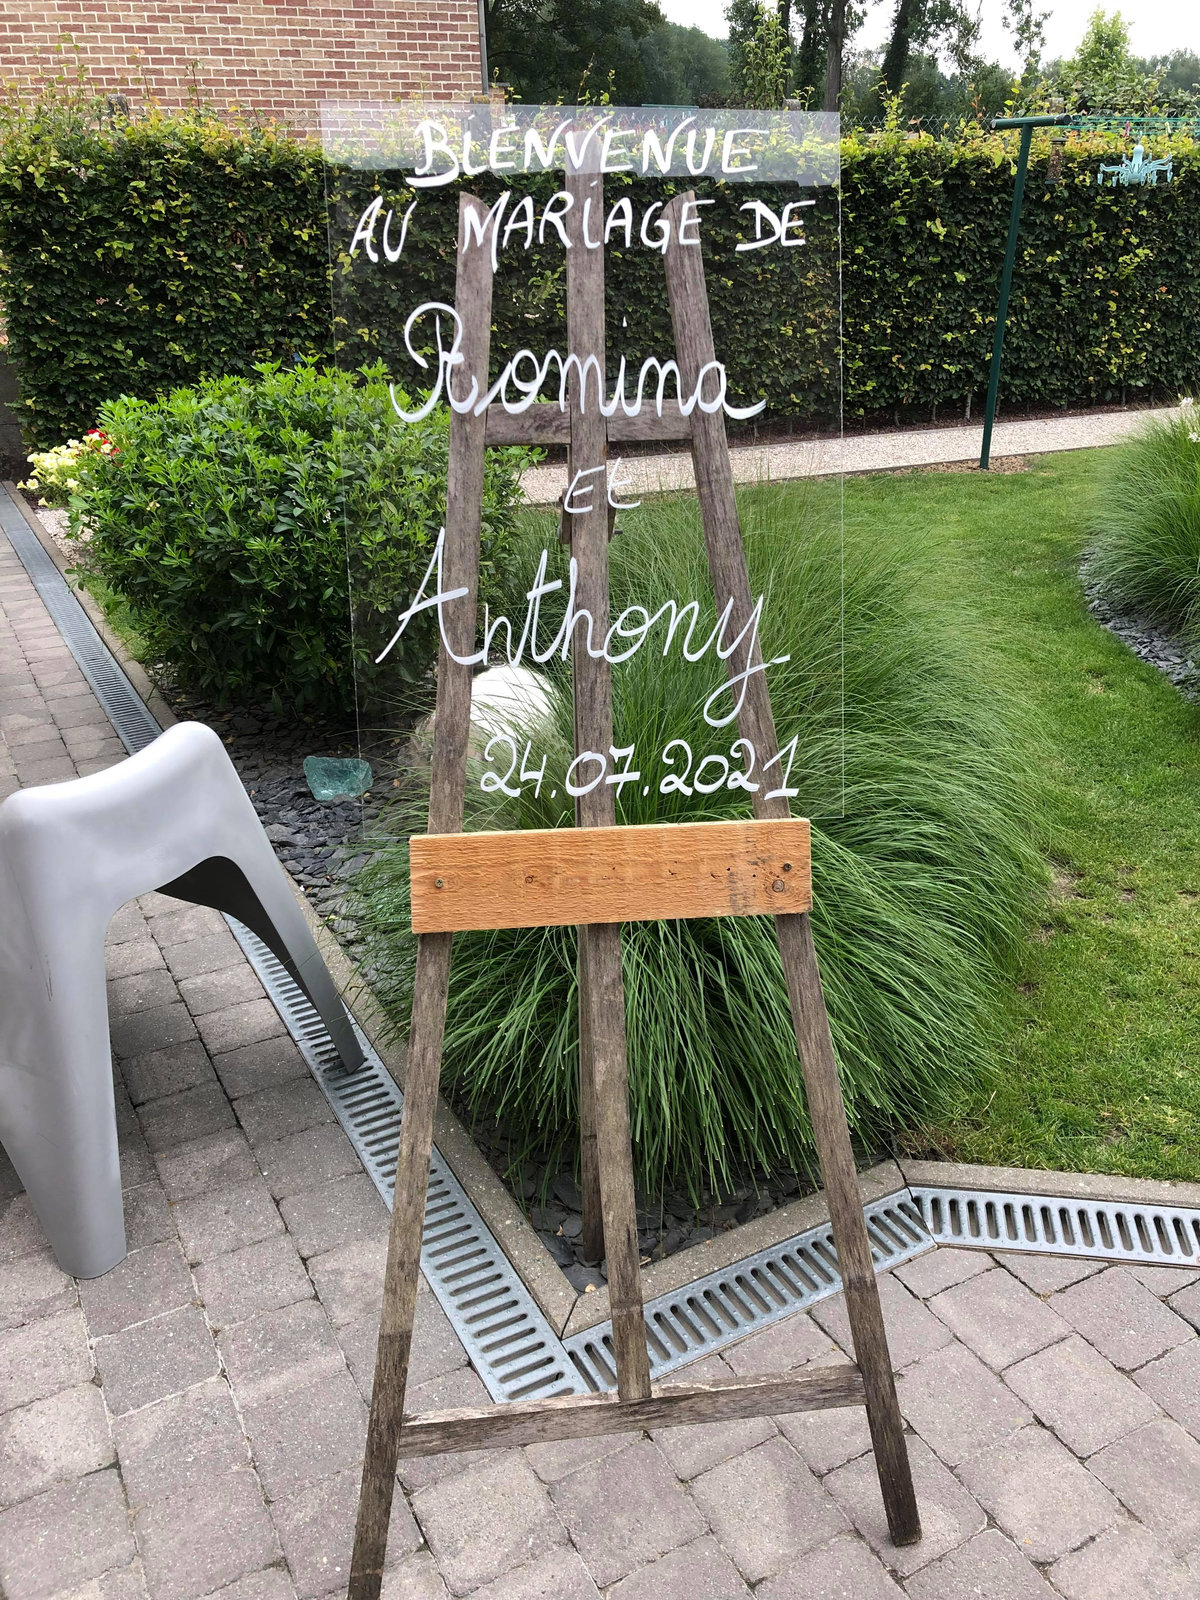 BIENVENUE
AU MARIAGE DE
Romina
Et
Anthony
24.07.2021